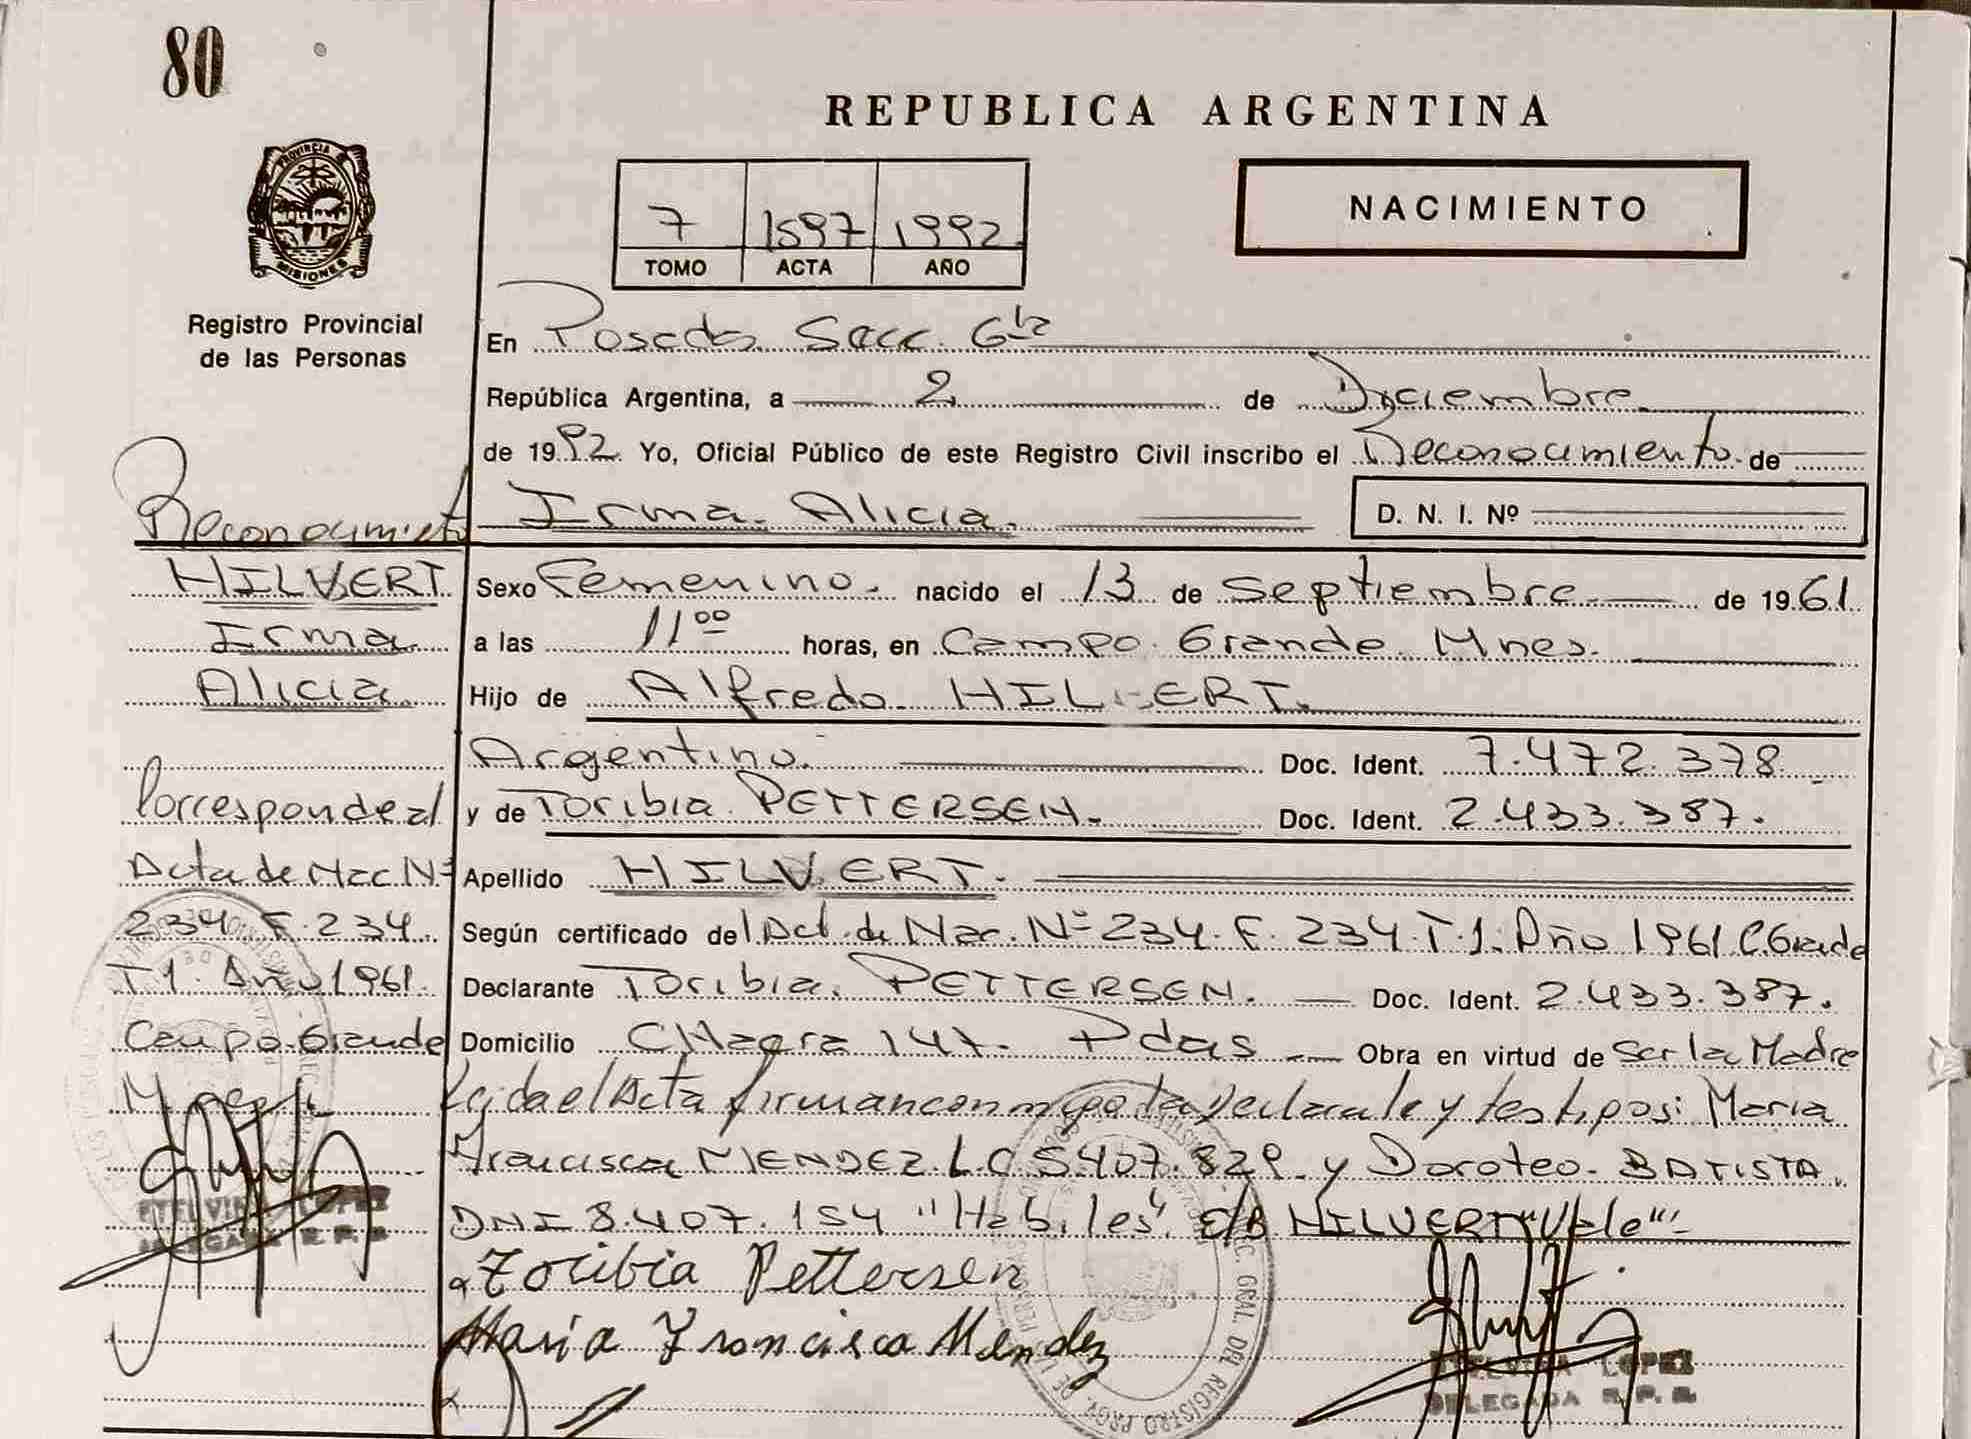 80
REPUBLICA ARGENTINA
PROVINCIA D
MISIONES
Registro Provincial
de las Personas
7 1597 1992
TOMO ACTA AÑO
NACIMIENTO
En Posadas Secc. 6ta
República Argentina, a 2 de Diciembre
de 1992 Yo, Oficial Público de este Registro Civil inscribo el Reconocimiento de
Irma Alicia. D. N. I. Nº
Reconocimiento
HILVERT
Irma
Alicia
Corresponde al
Acta de Nac Nº
234 F. 234
T 1. Año 1961.
Campo Grande
Sexo Femenino. nacido el 13 de Septiembre de 1961
a las 11 00 horas, en Campo Grande Mnes.
Hijo de Alfredo HILVERT.
Argentino. Doc. Ident. 7.472.378
y de Toribia PETTERSEN. Doc. Ident. 2.433.387.
Apellido HILVERT.
Según certificado del Act. de Nac. Nº 234. F. 234. T. 1. Año 1961 C. Grande
Declarante Toribia PETTERSEN. Doc. Ident. 2.433.387.
Domicilio CHacra 147. Pdas Obra en virtud de Ser la Madre
Leida el Acta firman conmigo la Declarante y testigos: Maria
Francisca MENDEZ L.C 5.407.829 y Doroteo BATISTA
DNI 8.407.154 "Habiles" E/B HILVERT "Vale"
Toribia Pettersen
Maria Francisca Mendez
ETELVINA LOPEZ
DELEGADA R. P. P.
ETELVINA LOPEZ
DELEGADA R. P. P.
GRAL. DEL REGISTRO PROV. DE